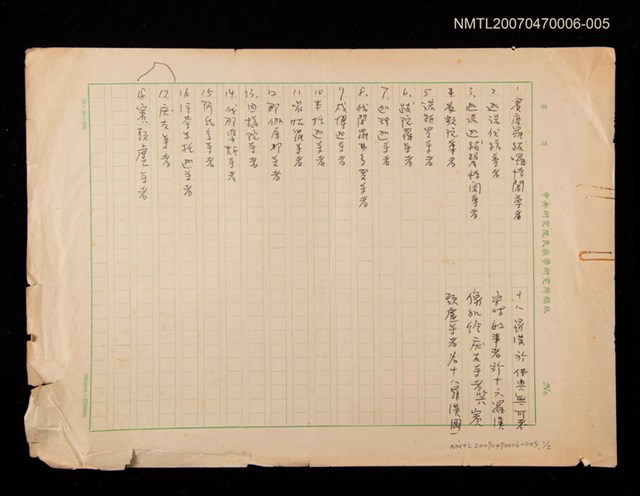 NMTL20070470006-005
中央研究院民族學研究所稿紙
No
1. 賓度羅跋囉惰闍尊者
2. 迦諾伐蹉尊者
3. 迦諾迦跋釐惰闍尊者
4. 蘇頻陀尊者
5. 諾距羅尊者
6. 跋陀羅尊者
7. 迦理迦尊者
8. 伐闍羅弗多羅尊者
9. 戍博迦尊者
10. 半托迦尊者
11. 羅怙羅尊者
12. 那伽犀那尊者
13. 因揭陀尊者
14. 伐那婆斯尊者
15. 阿氏多尊者
16. 注荼半托迦尊者
17. 慶友尊者
18. 賓頭盧尊者
十八羅漢於佛典無可考
於十六羅漢
像外繪慶友尊者與賓
頭盧尊者為十八羅漢圖
NMTL20070470006-005, 1/2